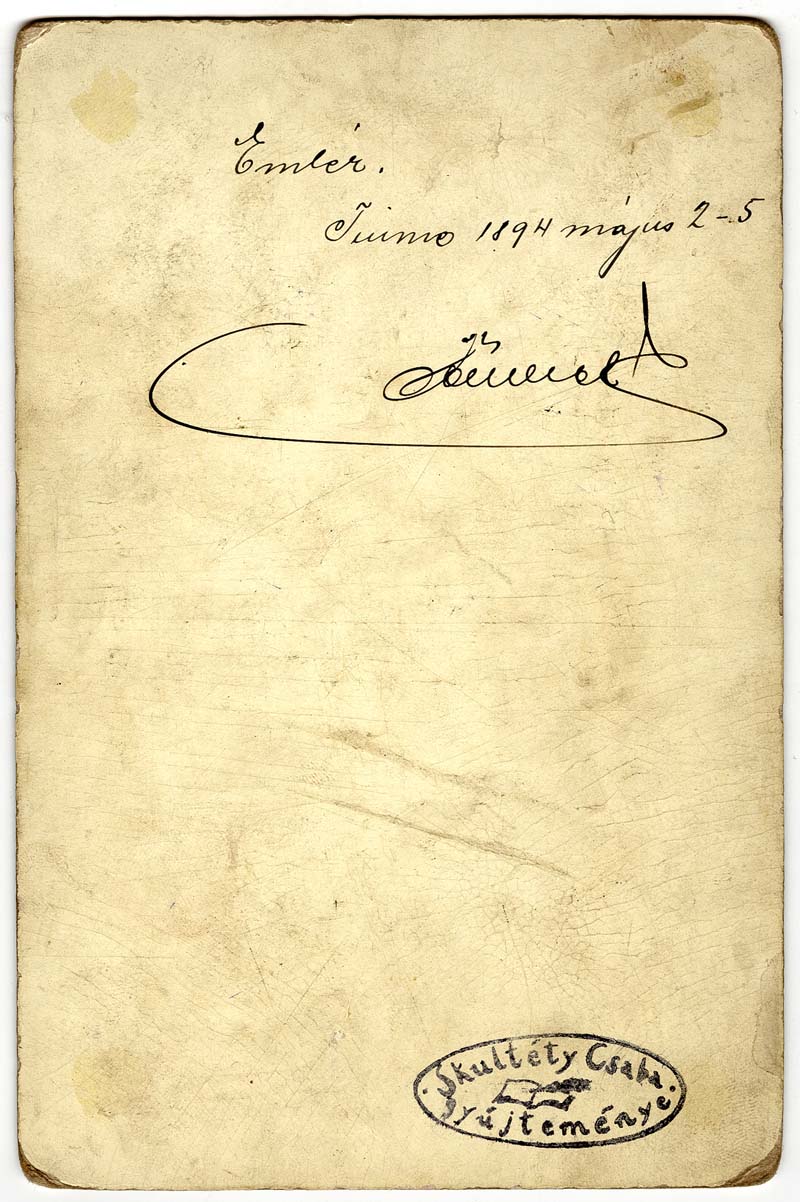 Emlék.
Fiume 1894 május 2-5
Skultéty Csaba
gyűjteménye